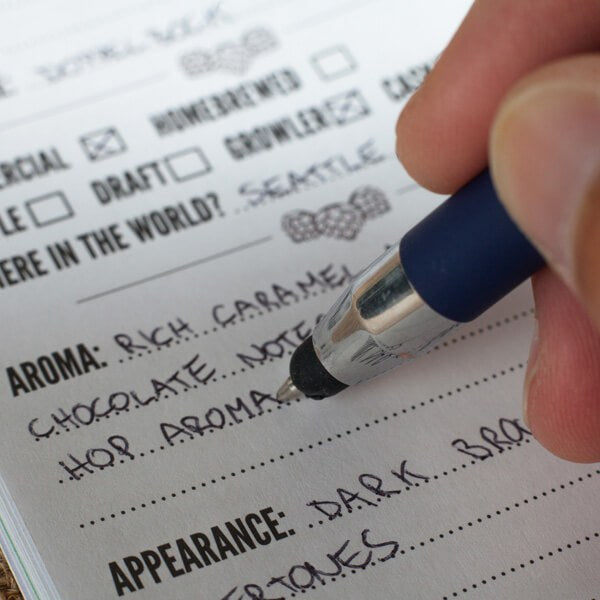 HOMEBREWED
ERCIAL GROWLER CASK
LE DRAFT
HERE IN THE WORLD? SEATTLE
AROMA: RICH CARAMEL
CHOCOLATE NOTES
HOP AROMA
APPEARANCE: DARK BRO
ERTONES